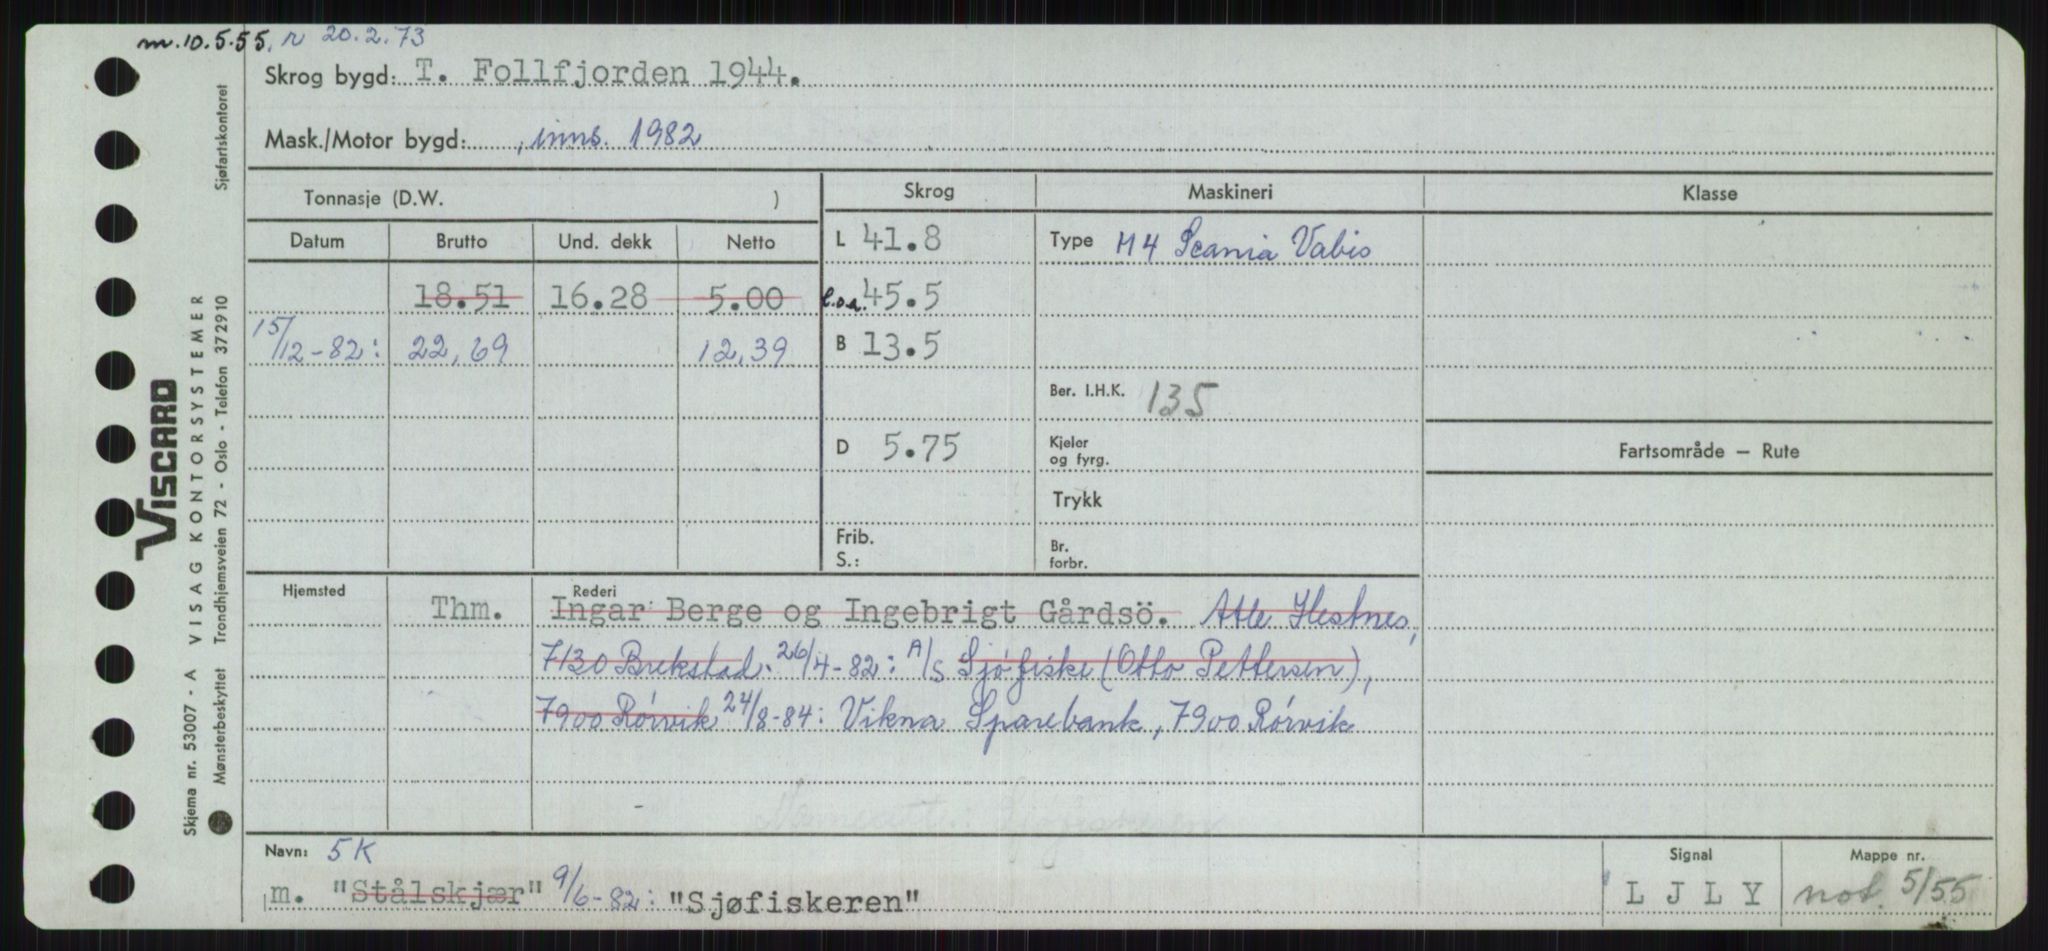 m. 10.5.55, r 20.2.73
Skrog bygd: T. Follfjorden 1944.
Mask./Motor bygd: , inns. 1982
Tonnasje (D.W. )
Skrog Maskineri Klasse
Datum Brutto Und. dekk Netto
L 41.8 Type M4 Scania Vabis
18.51 16.28 5.00 l.o.a. 45.5
15/12-82: 22,69 12,39 B 13.5
Ber. I.H.K. 135
D 5.75 Kjeler og fyrg.
Fartsområde — Rute
Trykk
Frib.
S.:
Br. forbr.
Hjemsted Rederi
Thm. Ingar Berge og Ingebrigt Gårdsö. Atle Hestnes,
7130 Brekstad. 26/4-82: A/S Sjøfiske (Otto Pettersen),
7900 Rørvik 24/8-84: Vikna Sparebank, 7900 Rørvik
Navn: 5K
Signal Mappe nr.
m. "Stålskjær" 9/6-82: "Sjøfiskeren" L J L Y not. 5/55
Viscard
VISAG KONTORSYSTEMER
Skjema nr. 53007 - A
Mønsterbeskyttet Trondhjemsveien 72 - Oslo - Telefon 372910 Sjøfartskontoret